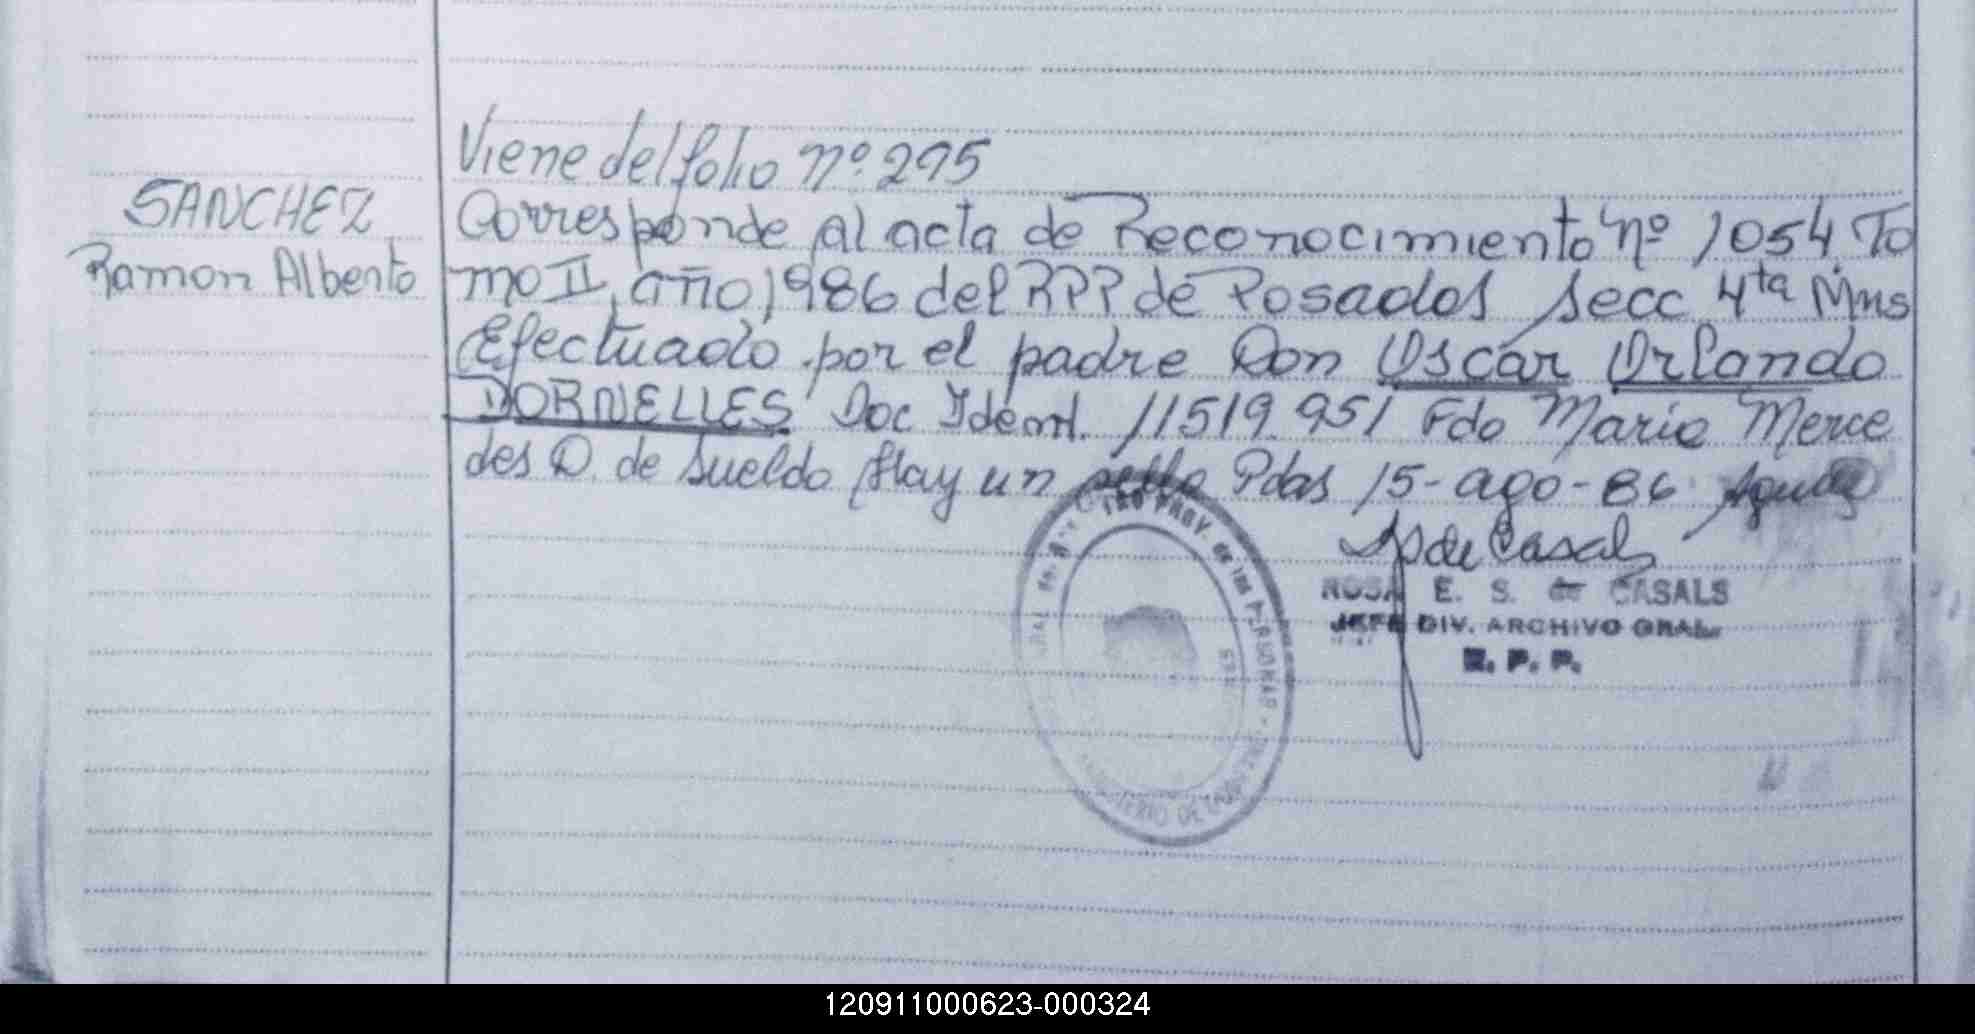 Viene del folio nº 295
SANCHEZ
Ramon Alberto
Corresponde al acta de Reconocimiento nº 1054 To
mo II, año 1986 del RPP de Posadas Secc 4ta Mns
Efectuado por el padre Don Oscar Orlando
DORNELLES Doc Ident. 11519.951 Fdo Maria Merce
des D. de Sueldo Hay un sello Pdas 15-ago-86
de Casals
ROSA E. S. de CASALS
JEFE DIV. ARCHIVO GRAL.
R. P. P.
PROV. de las PERSONAS
MINISTERIO DE
120911000623-000324